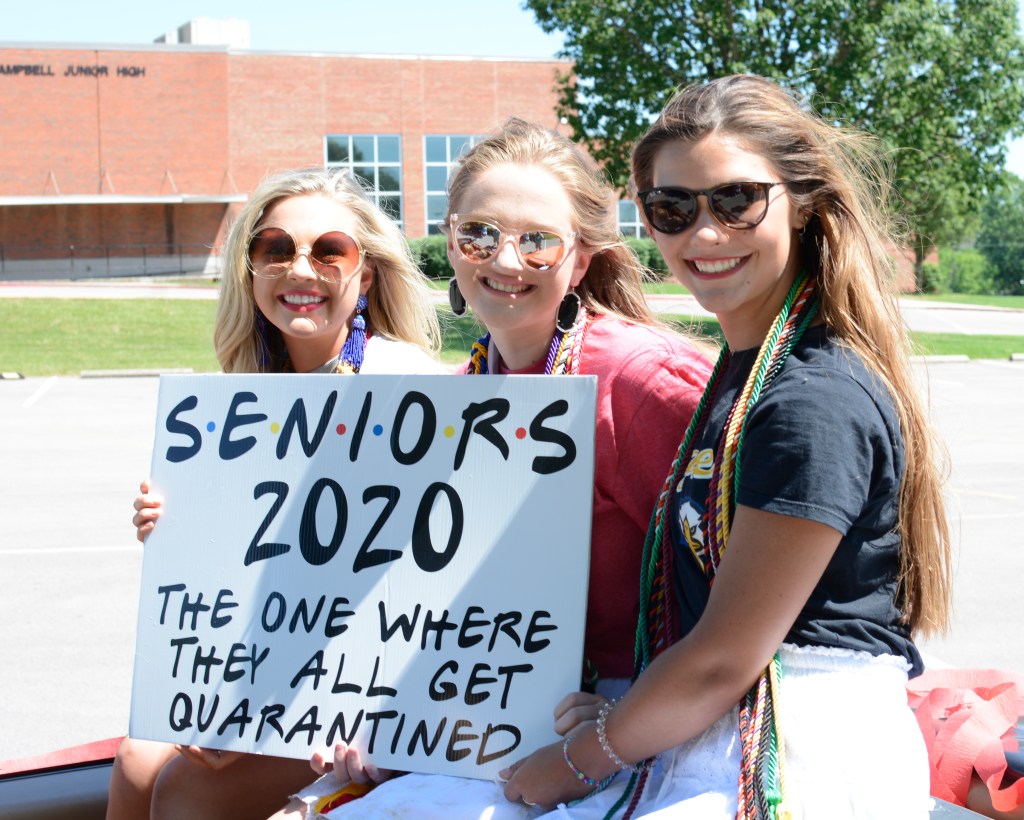 AMPBELL JUNIOR HIGH
S·E·N·I·O·R·S
2020
THE ONE WHERE
THEY ALL GET
QUARANTINED